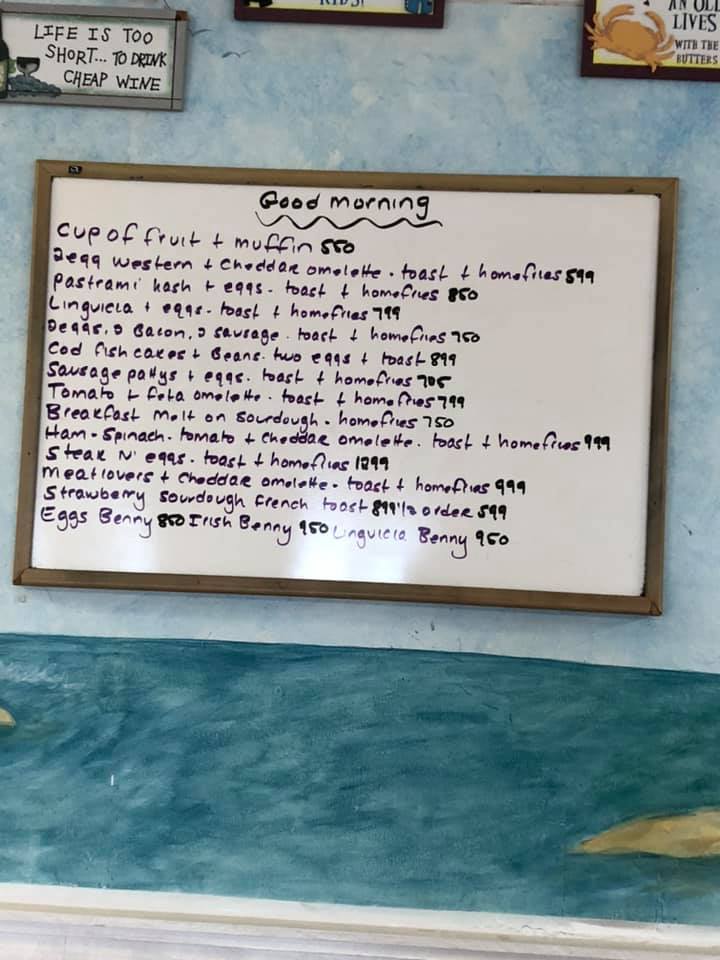 LIFE IS TOO
SHORT... TO DRINK
CHEAP WINE
KIDS!
AN OLD
LIVES
WITH THE
BUTTERS
Good morning
Cup of fruit + muffin 550
2egg western + Cheddar omelette - toast + homefries 599
Pastrami hash + eggs - toast + homefries 850
Linguicia + eggs - toast + homefries 799
2eggs, 2 Bacon, 2 sausage - toast + homefries 750
Cod fish cakes + Beans - two eggs + toast 899
Sausage pattys + eggs - toast + homefries 705
Tomato + feta omelette - toast + homefries 799
Breakfast melt on sourdough - homefries 750
Ham - Spinach - tomato + cheddar omelette - toast + homefries 999
Steak N' eggs - toast + homefries 1299
Meatlovers + cheddar omelette - toast + homefries 999
Strawberry Sourdough french toast 899 1/2 order 599
Eggs Benny 850 Irish Benny 950 Linguicia Benny 950